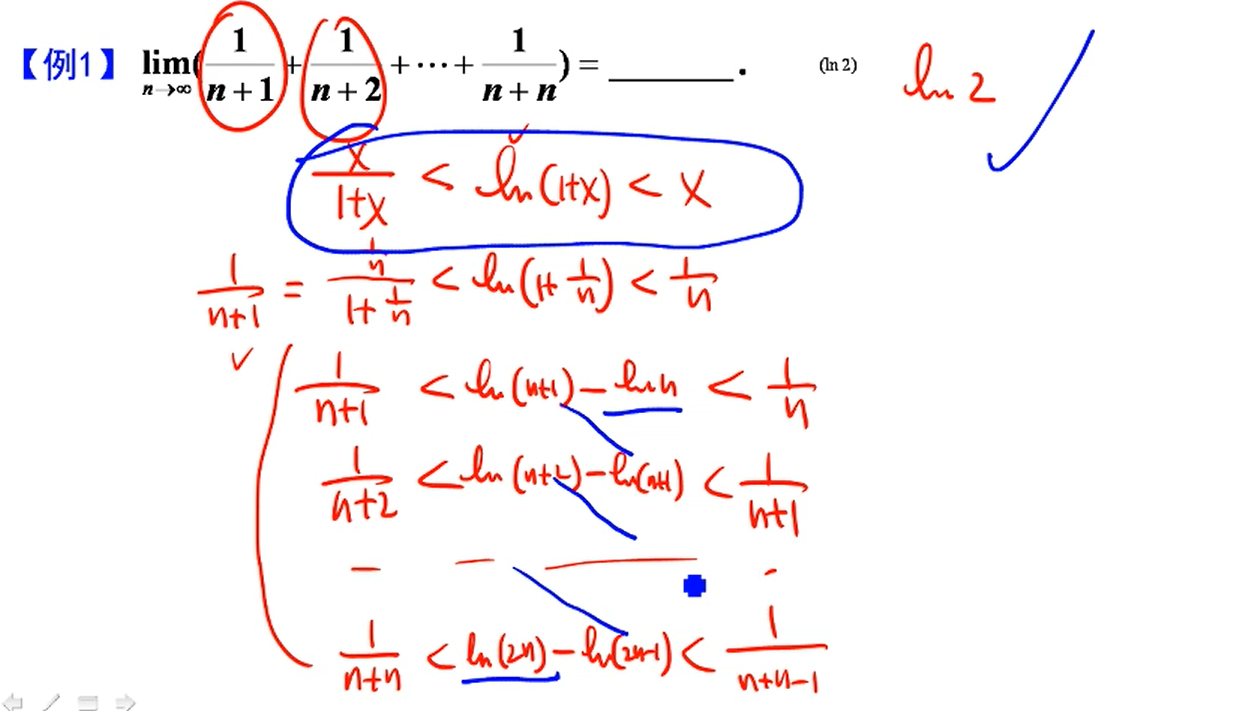 【例1】 lim_{n→∞}(1/(n+1) + 1/(n+2) + ⋯ + 1/(n+n)) = ________. (ln 2) ln 2 ✓
x/(1+x) < ln(1+x) < x
1/(n+1) = (1/n)/(1+1/n) < ln(1+1/n) < 1/n
1/(n+1) < ln(n+1) − ln n < 1/n
1/(n+2) < ln(n+2) − ln(n+1) < 1/(n+1)
1/(n+n) < ln(2n) − ln(2n−1) < 1/(n+n−1)